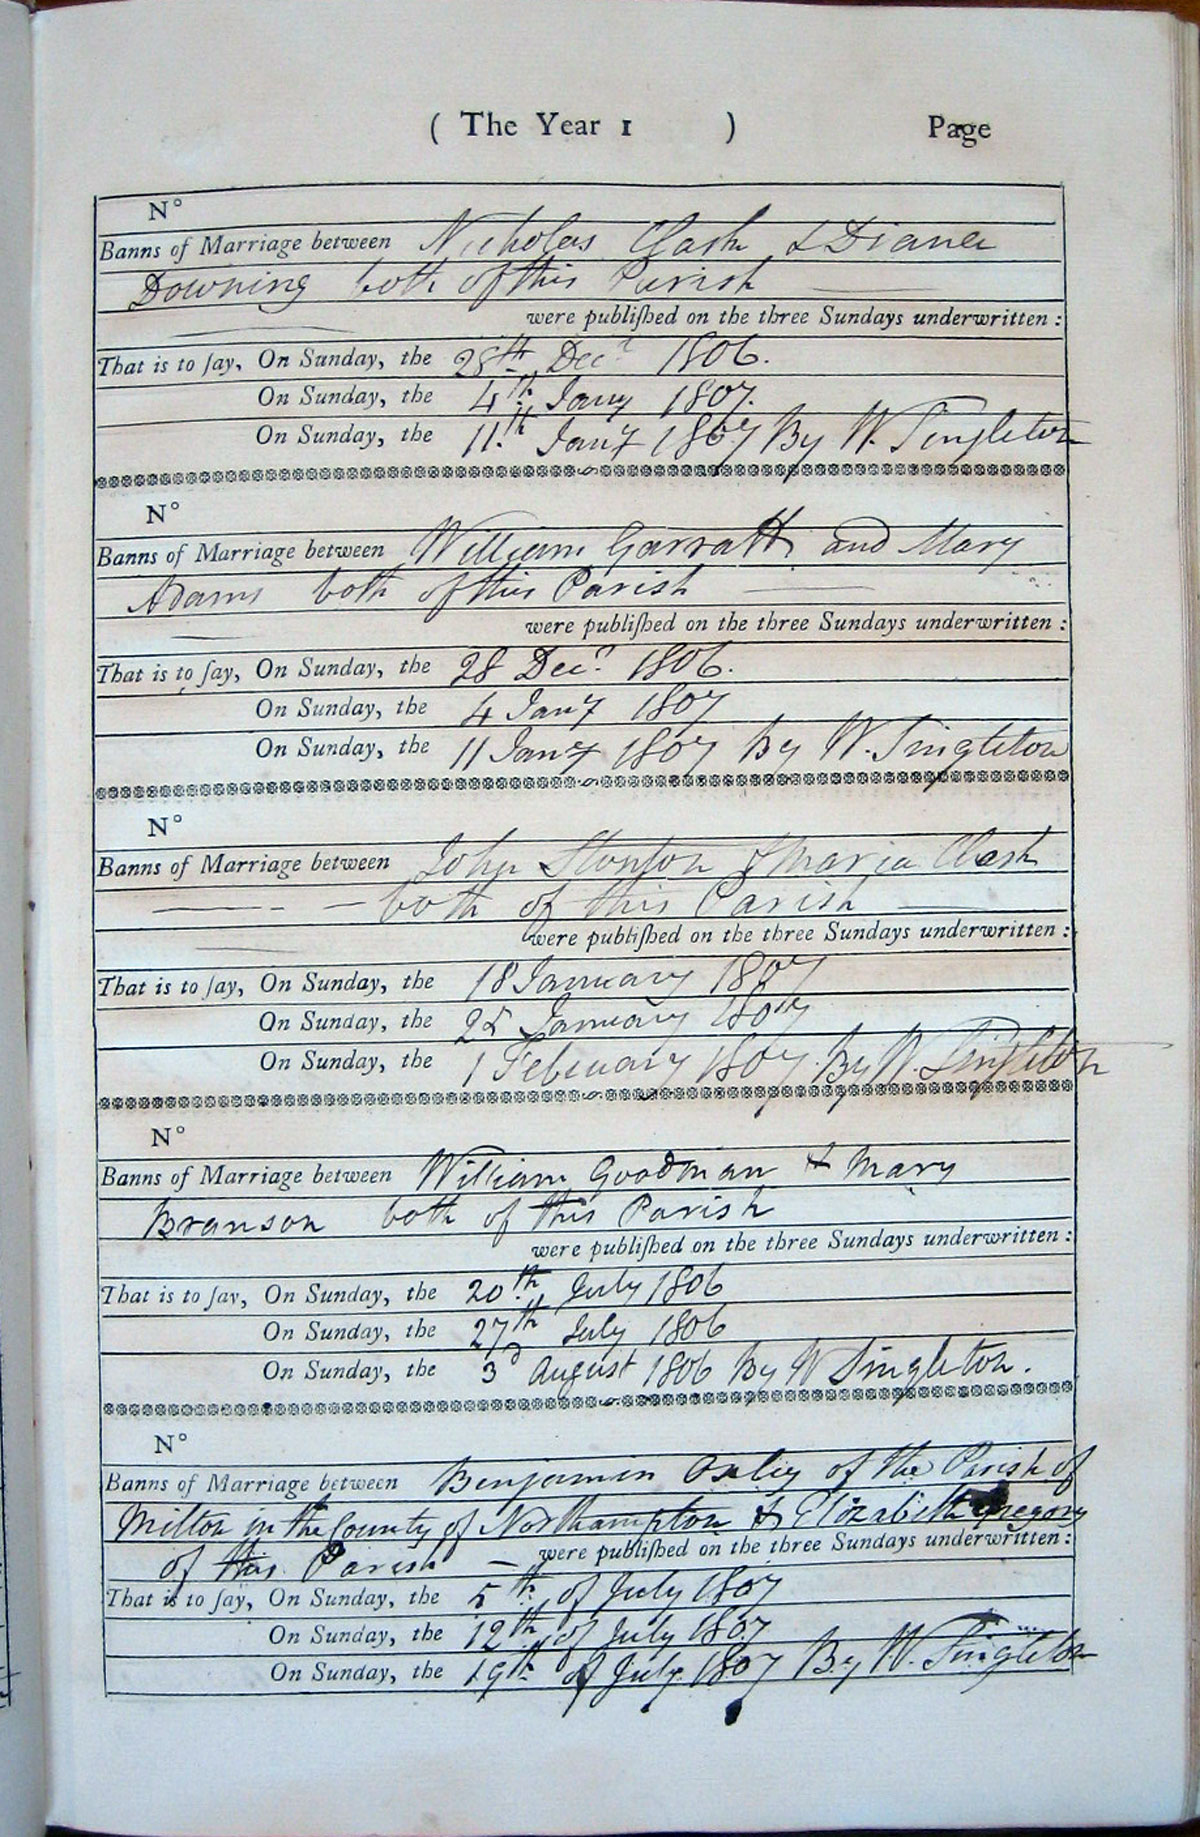 ( The Year 1 ) Page
N°
Banns of Marriage between Nicholas Clash & Diana
Downing both of this Parish
were publiſhed on the three Sundays underwritten :
That is to ſay, On Sunday, the 28th Decr 1806.
On Sunday, the 4th Jany 1807.
On Sunday, the 11th Jany 1807 By W. Singleton
N°
Banns of Marriage between William Garratt and Mary
Adams both of this Parish
were publiſhed on the three Sundays underwritten :
That is to ſay, On Sunday, the 28 Decr 1806.
On Sunday, the 4 Jany 1807
On Sunday, the 11 Jany 1807 By W. Singleton
N°
Banns of Marriage between John & Maria Clash
both of this Parish
were publiſhed on the three Sundays underwritten :
That is to ſay, On Sunday, the 18 January 1807
On Sunday, the 25 January 1807
On Sunday, the 1 February 1807. By W. Singleton
N°
Banns of Marriage between William Goodman & Mary
Branson both of this Parish
were publiſhed on the three Sundays underwritten :
That is to ſay, On Sunday, the 20th July 1806
On Sunday, the 27th July 1806
On Sunday, the 3d August 1806 By W Singleton.
N°
Banns of Marriage between Benjamin Oxley of the Parish of
Milton in the County of Northampton & Elizabeth Gregory
of this Parish were publiſhed on the three Sundays underwritten :
That is to ſay, On Sunday, the 5th of July 1807
On Sunday, the 12th of July 1807
On Sunday, the 19th of July 1807 By W. Singleton